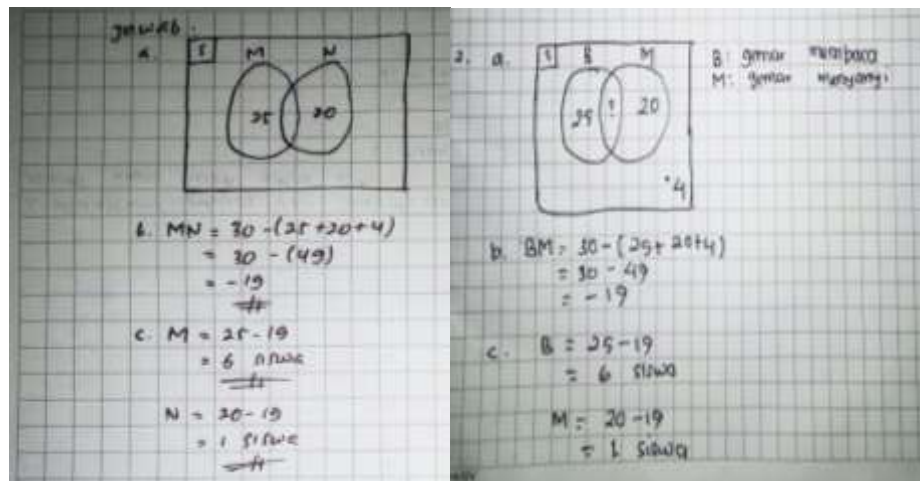 Jawab :
a. S M N
25 20
b. MN = 30 - (25 + 20 + 4)
= 30 - (49)
= - 19
c. M = 25 - 19
= 6 siswa
N = 20 - 19
= 1 siswa
2. a. S B M
25 20
4
B : gemar membaca
M : gemar menyanyi
b. BM = 30 - (25 + 20 + 4)
= 30 - 49
= - 19
c. B = 25 - 19
= 6 siswa
M = 20 - 19
= 1 siswa